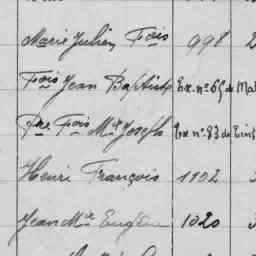 Marie Julien Fois 998 2
Fois Jean Baptiste Ex. nº 65 de Mal
Pre Fois Mie Joseph Ex. nº 83 de
Henri François 1102
Jean Mie Eugène 1020 3